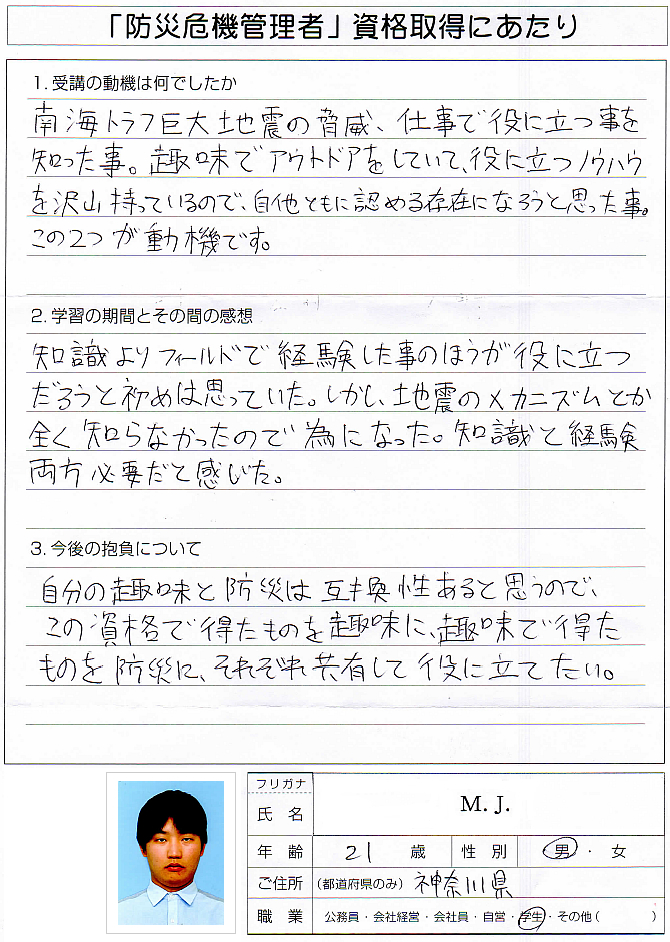 「防災危機管理者」資格取得にあたり
1. 受講の動機は何でしたか
南海トラフ巨大地震の脅威、仕事で役に立つ事を
知った事。趣味でアウトドアをしていて、役に立つノウハウ
を沢山持っているので、自他ともに認める存在になろうと思った事。
この2つが動機です。
2. 学習の期間とその間の感想
知識よりフィールドで経験した事のほうが役に立つ
だろうと初めは思っていた。しかし、地震のメカニズムとか
全く知らなかったので為になった。知識と経験
両方必要だと感じた。
3. 今後の抱負について
自分の趣味と防災は互換性あると思うので、
この資格で得たものを趣味に、趣味で得た
ものを防災に、それぞれ共有して役に立てたい。
フリガナ
氏 名 M. J.
年 齢 21 歳 性 別 男 ・ 女
ご住所 (都道府県のみ) 神奈川県
職 業 公務員・会社経営・会社員・自営・学生・その他( )